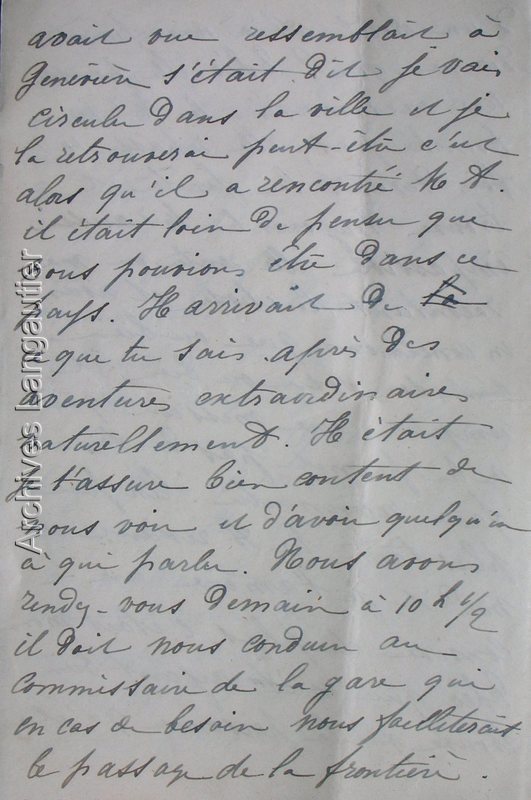 avait vue ressemblait à
Geneviève s'était dit je vais
circuler dans la ville et je
la retrouverai peut-être c'est
alors qu'il a rencontré M A.
il était loin de penser que
nous pouvions être dans ce
pays. Il arrivait de la
ce que tu sais. après des
aventures extraordinaires
naturellement. Il était
je t'assure bien content de
nous voir et d'avoir quelqu'un
à qui parler. Nous avons
rendez-vous demain à 10 h 1/2
il doit nous conduire au
commissaire de la gare qui
en cas de besoin nous faciliterait
le passage de la frontière.
Archives Langautier